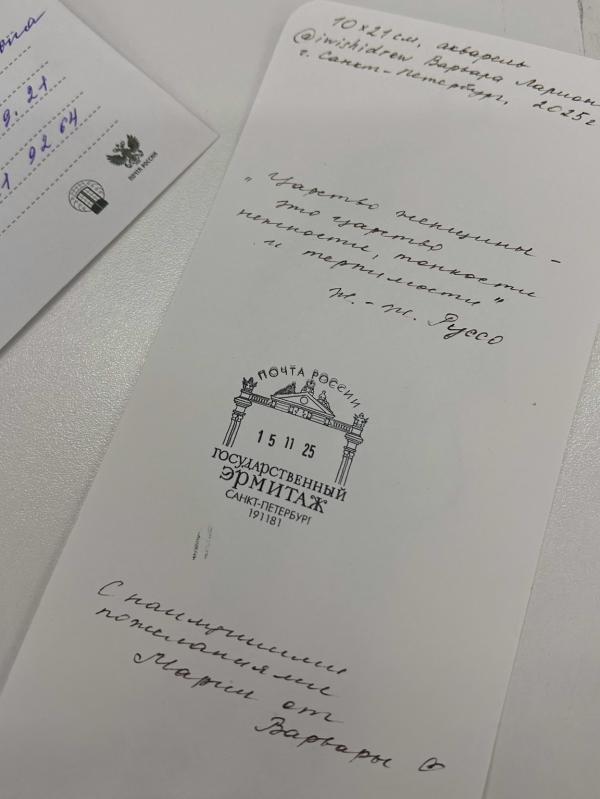 9.21
1 92 64
ПОЧТА РОССИИ
10×21см, акварель
@iwishidrew Варвара Ларион
г. Санкт-Петербург, 2025г
„Царство женщины –
это царство
нежности, тонкости
и терпимости"
Ж.-Ж. Руссо
ПОЧТА РОССИИ
15 11 25
ГОСУДАРСТВЕННЫЙ
ЭРМИТАЖ
САНКТ-ПЕТЕРБУРГ
191181
С наилучшими
пожеланиями
Марии от
Варвары